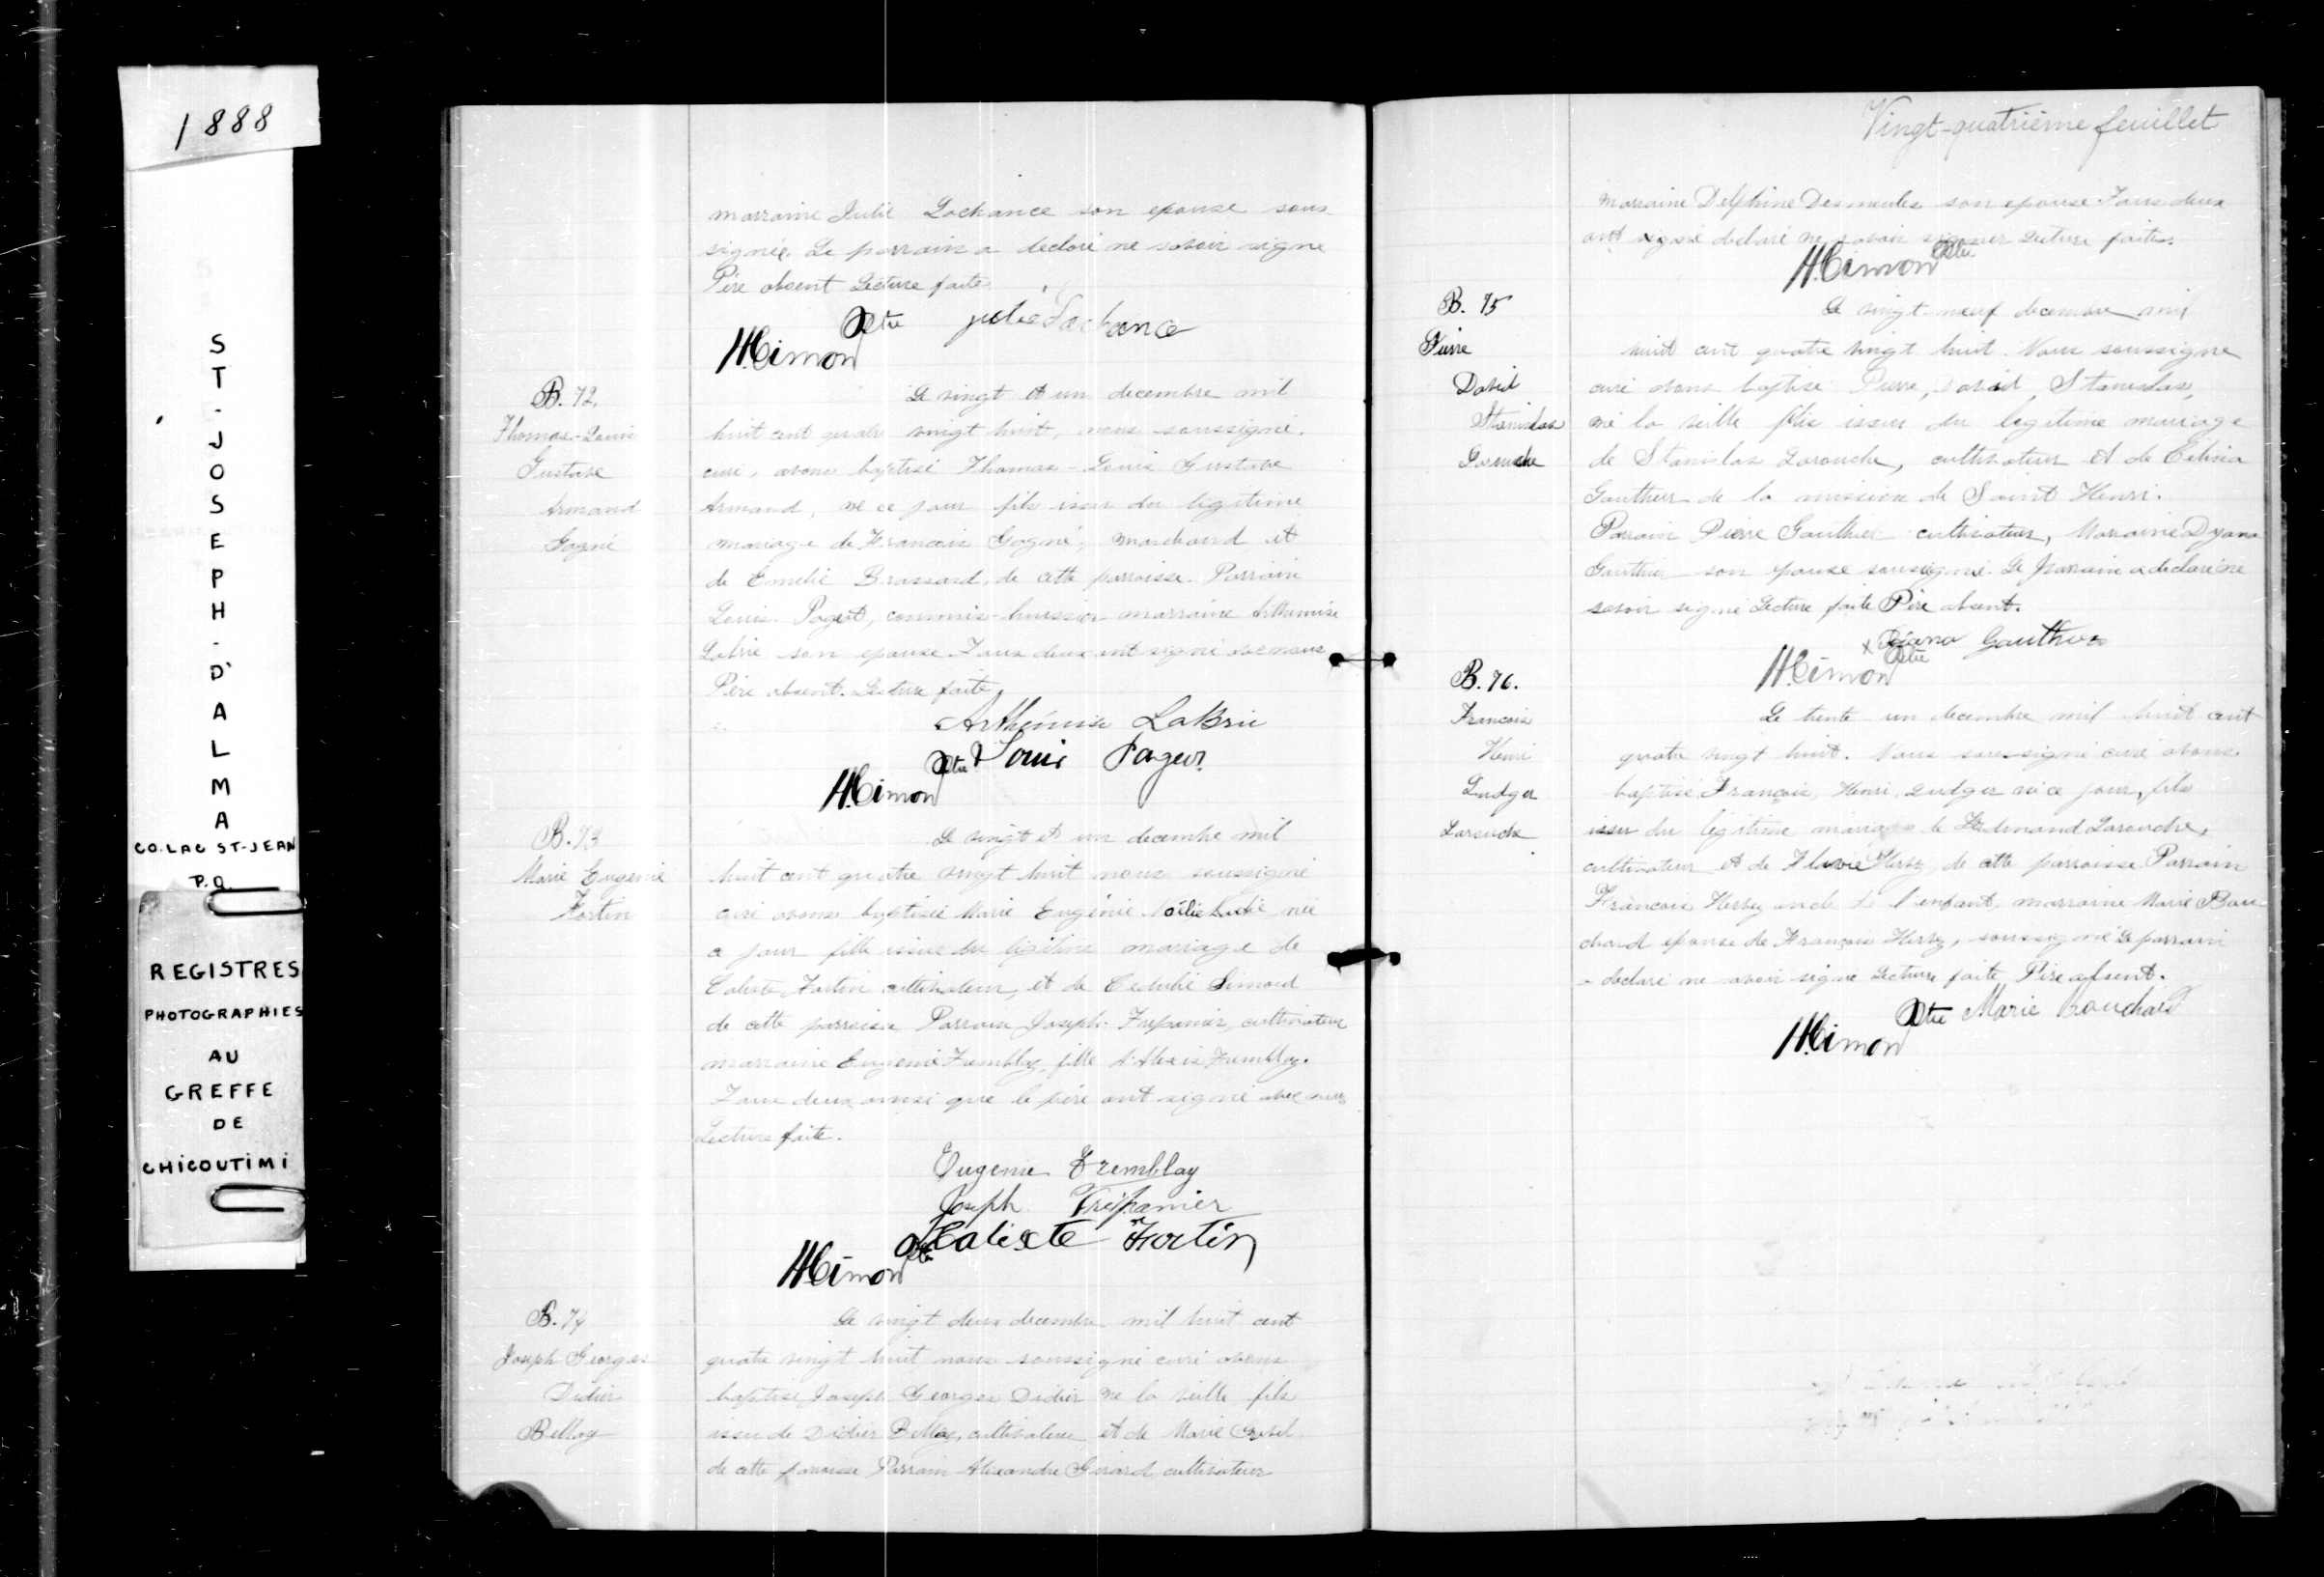 1888
ST-JOSEPH-D'ALMA
CO. LAC ST-JEAN
P.Q.
REGISTRES
PHOTOGRAPHIES
AU
GREFFE
DE
CHICOUTIMI
marraine Julie Lachance son epouse sous
signée. Le parrain a declaré ne savoir signe
Père absent Lecture faite
Ptre julie Lachance
H. Cimon
B. 72.
Thomas-Louis
Gustave
Armand
Gagné
Le vingt et un decembre mil
huit cent quatre vingt huit, nous soussigné.
curé, avons baptisé Thomas-Louis Gustave
Armand, né ce jour fils issu du légitime
mariage de Francois Gagné, marchand et
de Emelie Brassard, de cette parroisse. Parrain
Louis Paget, commis-huissier marraine Arthemise
Labrie son epouse Tous deux ont signé avec nous
Père absent. Lecture faite.
Arthémise LaBrie
Ptre Louis Paget
H. Cimon
B. 73
Marie Eugenie
Fortin
Le vingt et un decembre mil
huit cent quatre vingt huit nous soussigné
curé avons baptisée Marie Eugénie née
ce jour fille issue du légitime mariage de
Calixte Fortin cultivateur, et de Simard
de cette parroisse Parrain Joseph Trepanier, cultivateur
marraine Eugenie Tremblay, fille d'Alexis Tremblay.
Tous deux ainsi que le père ont signé avec nous
Lecture faite.
Eugenie Tremblay
Joseph Trépanier
Calixte Fortin
H. Cimon Ptre
B. 74
Joseph Georges
Didier
Bellay
Le vingt deux decembre mil huit cent
quatre vingt huit nous soussigné curé avons
baptisé Joseph Georges Didier né la veille fils
issu de Didier Bellay, cultivateur et de Marie
de cette paroisse Parrain Alexandre Girard cultivateur
Vingt-quatrième feuillet
marraine Delphine Desmeules son epouse Tous deux
ont declaré ne savoir signer Lecture faite.
H. Cimon Ptre
B. 75
Pierre
David
Stanislas
Larouche
Le vingt-neuf decembre mil
huit cent quatre vingt huit. Nous soussigne
curé avons baptise Pierre, David, Stanislas,
né la veille fils issu du legitime mariage
de Stanislas Larouche, cultivateur et de Celina
Gauthier de la mission de Saint Henri.
Parrain Pierre Gauthier cultivateur, Marraine Dyana
Gauthier son epouse soussigné. Le parrain a declaré ne
savoir signé Lecture faite Père absent.
x Diana Gauthier
H. Cimon Ptre
B. 76.
Francois
Henri
Ludger
Larouche
Le trente un decembre mil huit cent
quatre vingt huit. Nous soussigné curé avons
baptisé Francois, Henri, Ludger né ce jour, fils
issu du légitime mariage de Ferdinand Larouche,
cultivateur et de Flavie de cette parroisse Parrain
Francois oncle de l'enfant marraine Marie Bou
chard epouse de Francois soussigné le parrain
a declaré ne savoir signe Lecture faite Père absent.
Ptre Marie Bouchard
H. Cimon